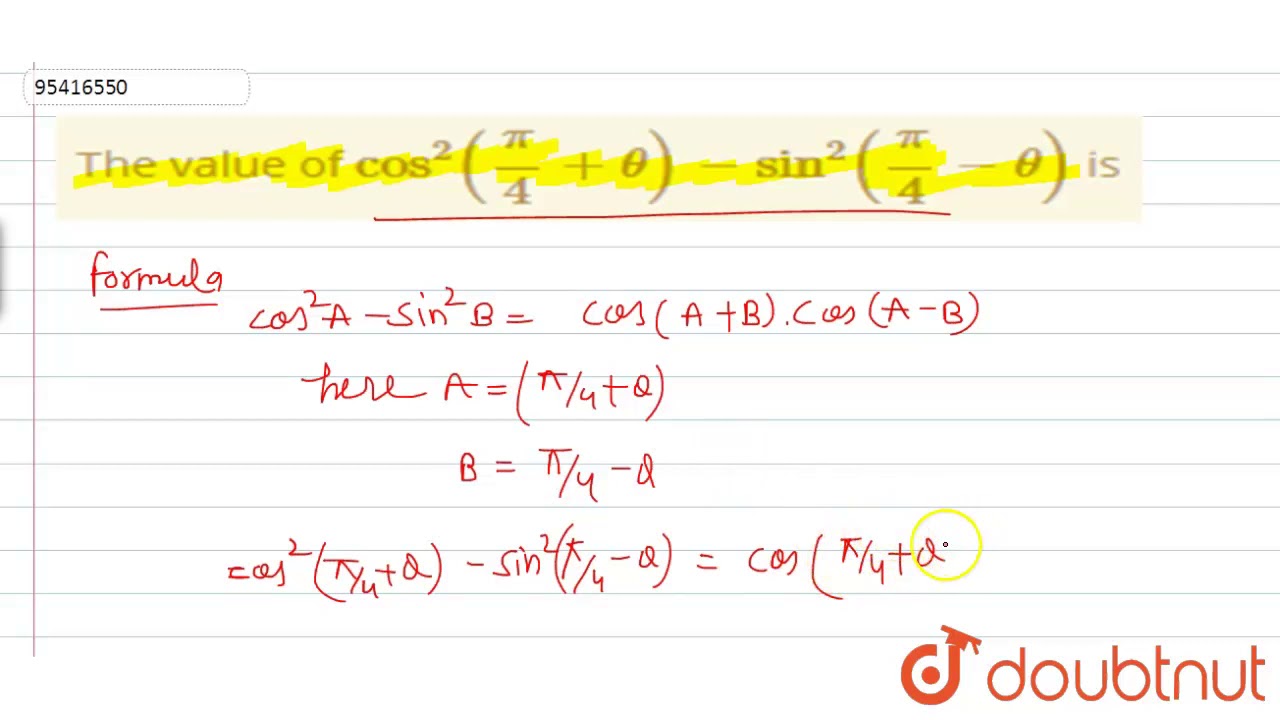 95416550
The value of cos²(π/4 + θ) − sin²(π/4 − θ) is
formula
cos²A − sin²B = cos(A+B).cos(A−B)
here A = (π/4+θ)
B = π/4 − θ
=cos²(π/4+θ) − sin²(π/4−θ) = cos(π/4+θ
doubtnut